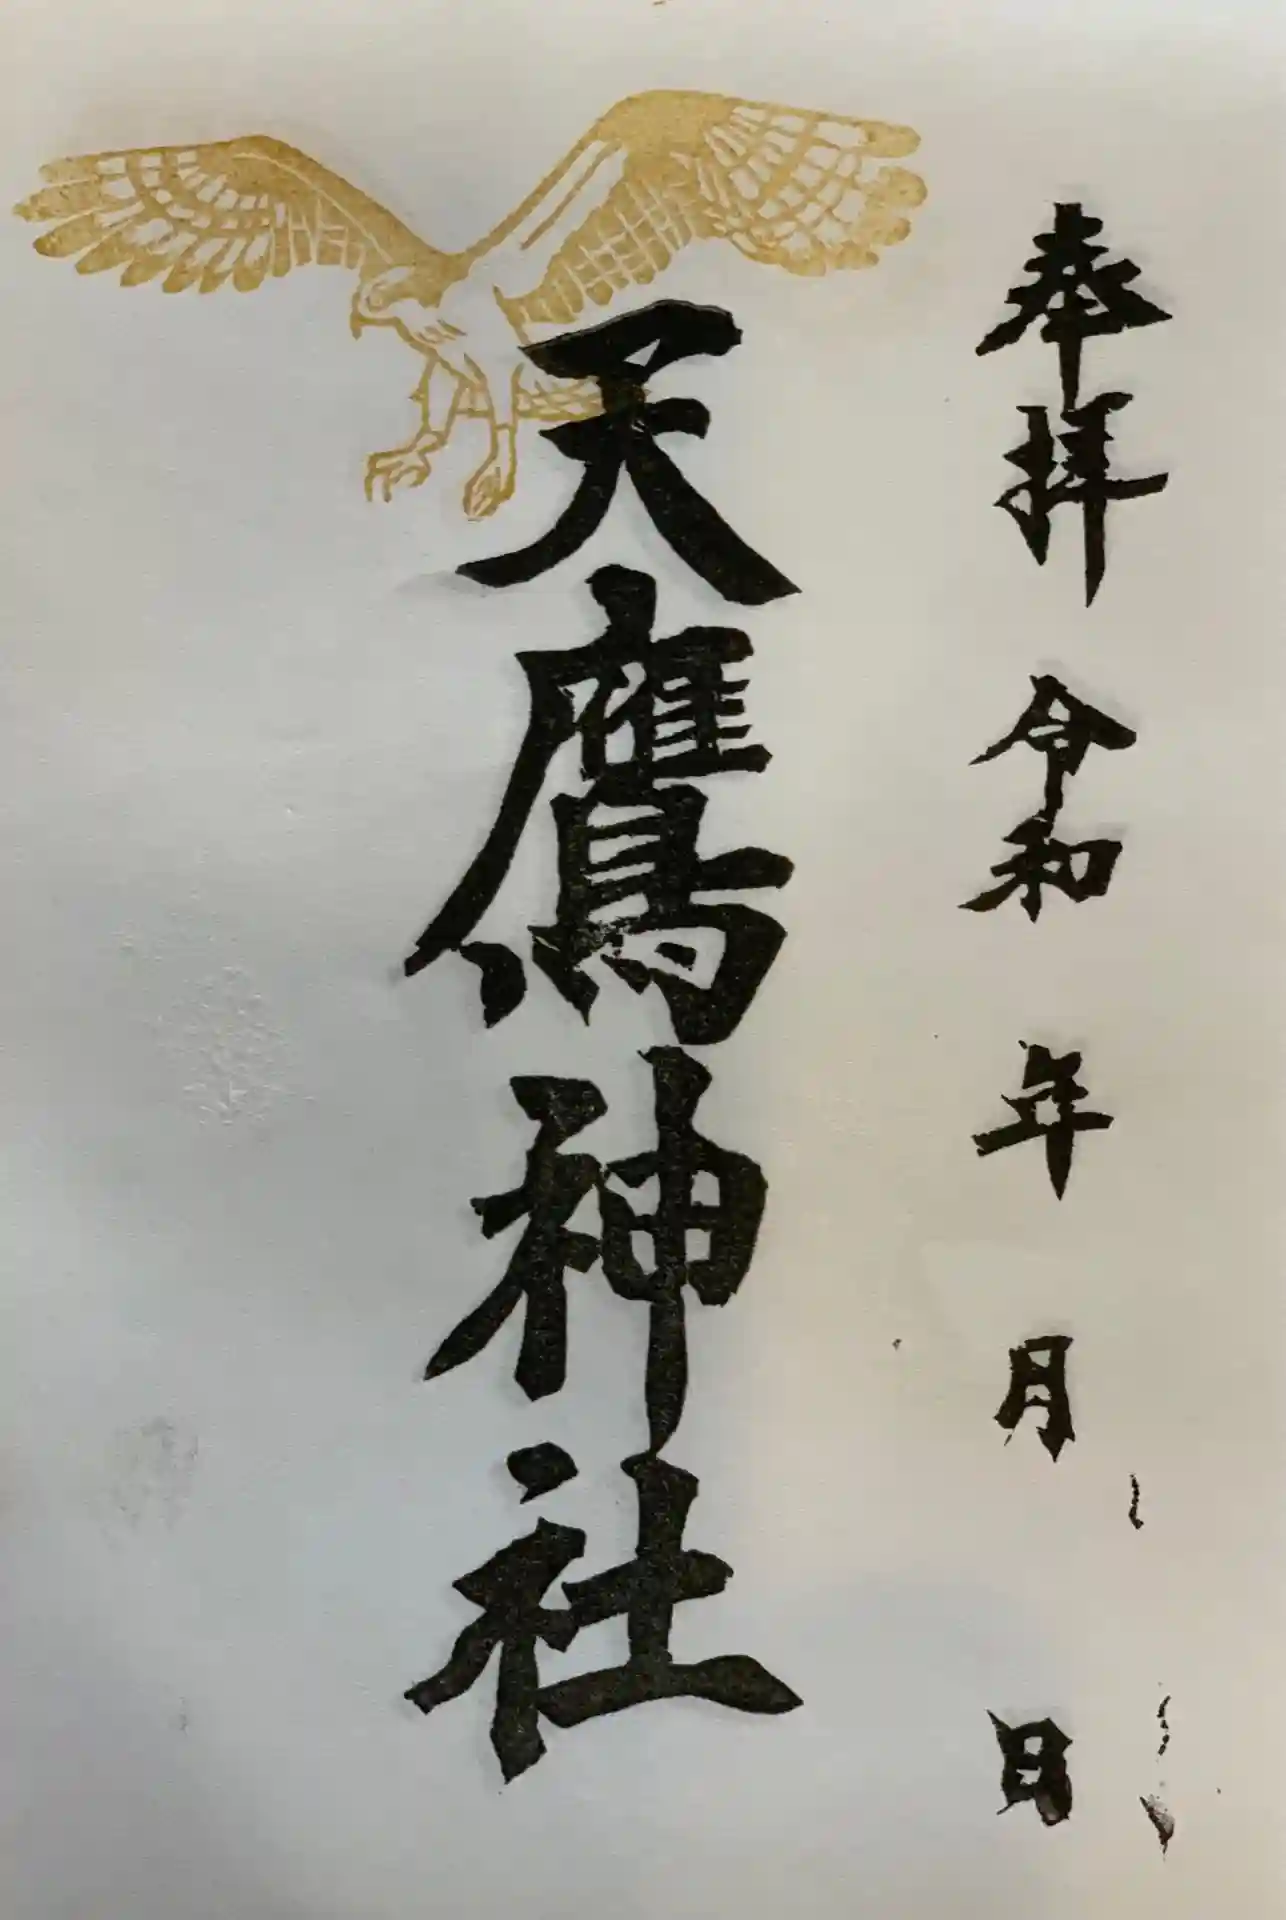 奉拝 令和 年 月 日
天鷹神社